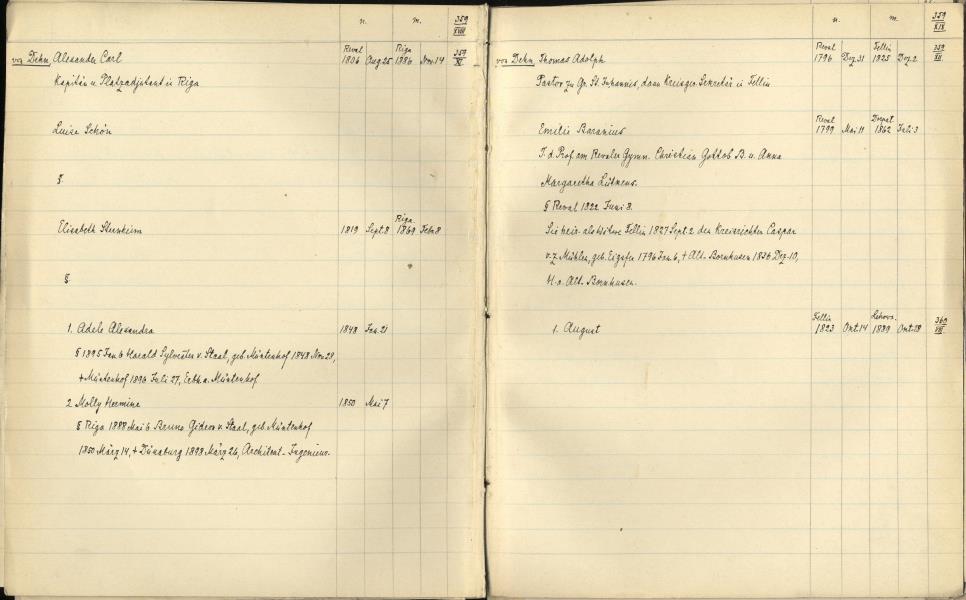 n. m. 359
XVIII
Reval Riga 359
von Dehn Alexander Carl 1806 Aug 25 1886 Nov. 14 XI
Kapitän u. Platzadjutant in Riga
Luise Schön
§.
Riga.
Elisabeth Sternheim 1819 Sept 8 1869 Febr 8
§
1. Adele Alexandra 1848 Jan. 21
§ 1895 Jan 6 Harald Sylvester v. Staal, geb Müntenhof 1848 Nov 28,
+ Müntenhof 1896 Juli 27, Erbh. a. Müntenhof.
2 Molly Hermine 1850 Mai 7
§ Riga 1888 Mai 6 Bruno Gideon v. Staal, geb Müntenhof
1850 März 14, + Dünaburg 1898 März 26, Architekt-Ingenieur.
n. m. 359
XIX
Reval Fellin 359
von Dehn Thomas Adolph 1796 Dez 31 1825 Dez 2 XII
Pastor zu Gr. St. Johannis, dann Kreisger. Sekretär in Fellin
Reval Dorpat
Emilie Baranius 1799 Mai 11 1862 Juli 3
T. d. Prof. am Revaler Gymn. Christian Gottlob B. u. Anna
Margaretha
§ Reval 1822 Juni 8.
Sie heir. als Witwe Fellin 1827 Sept. 2 den Kreisrichter Caspar
v. z. Mühlen, geb. Eigstfer 1796 Jan. 6, + Alt-Bornhusen 1836 Dez. 10,
H. a. Alt-Bornhusen.
Fellin 360
1. August 1823 Okt. 14 1889 Okt. 18 VII